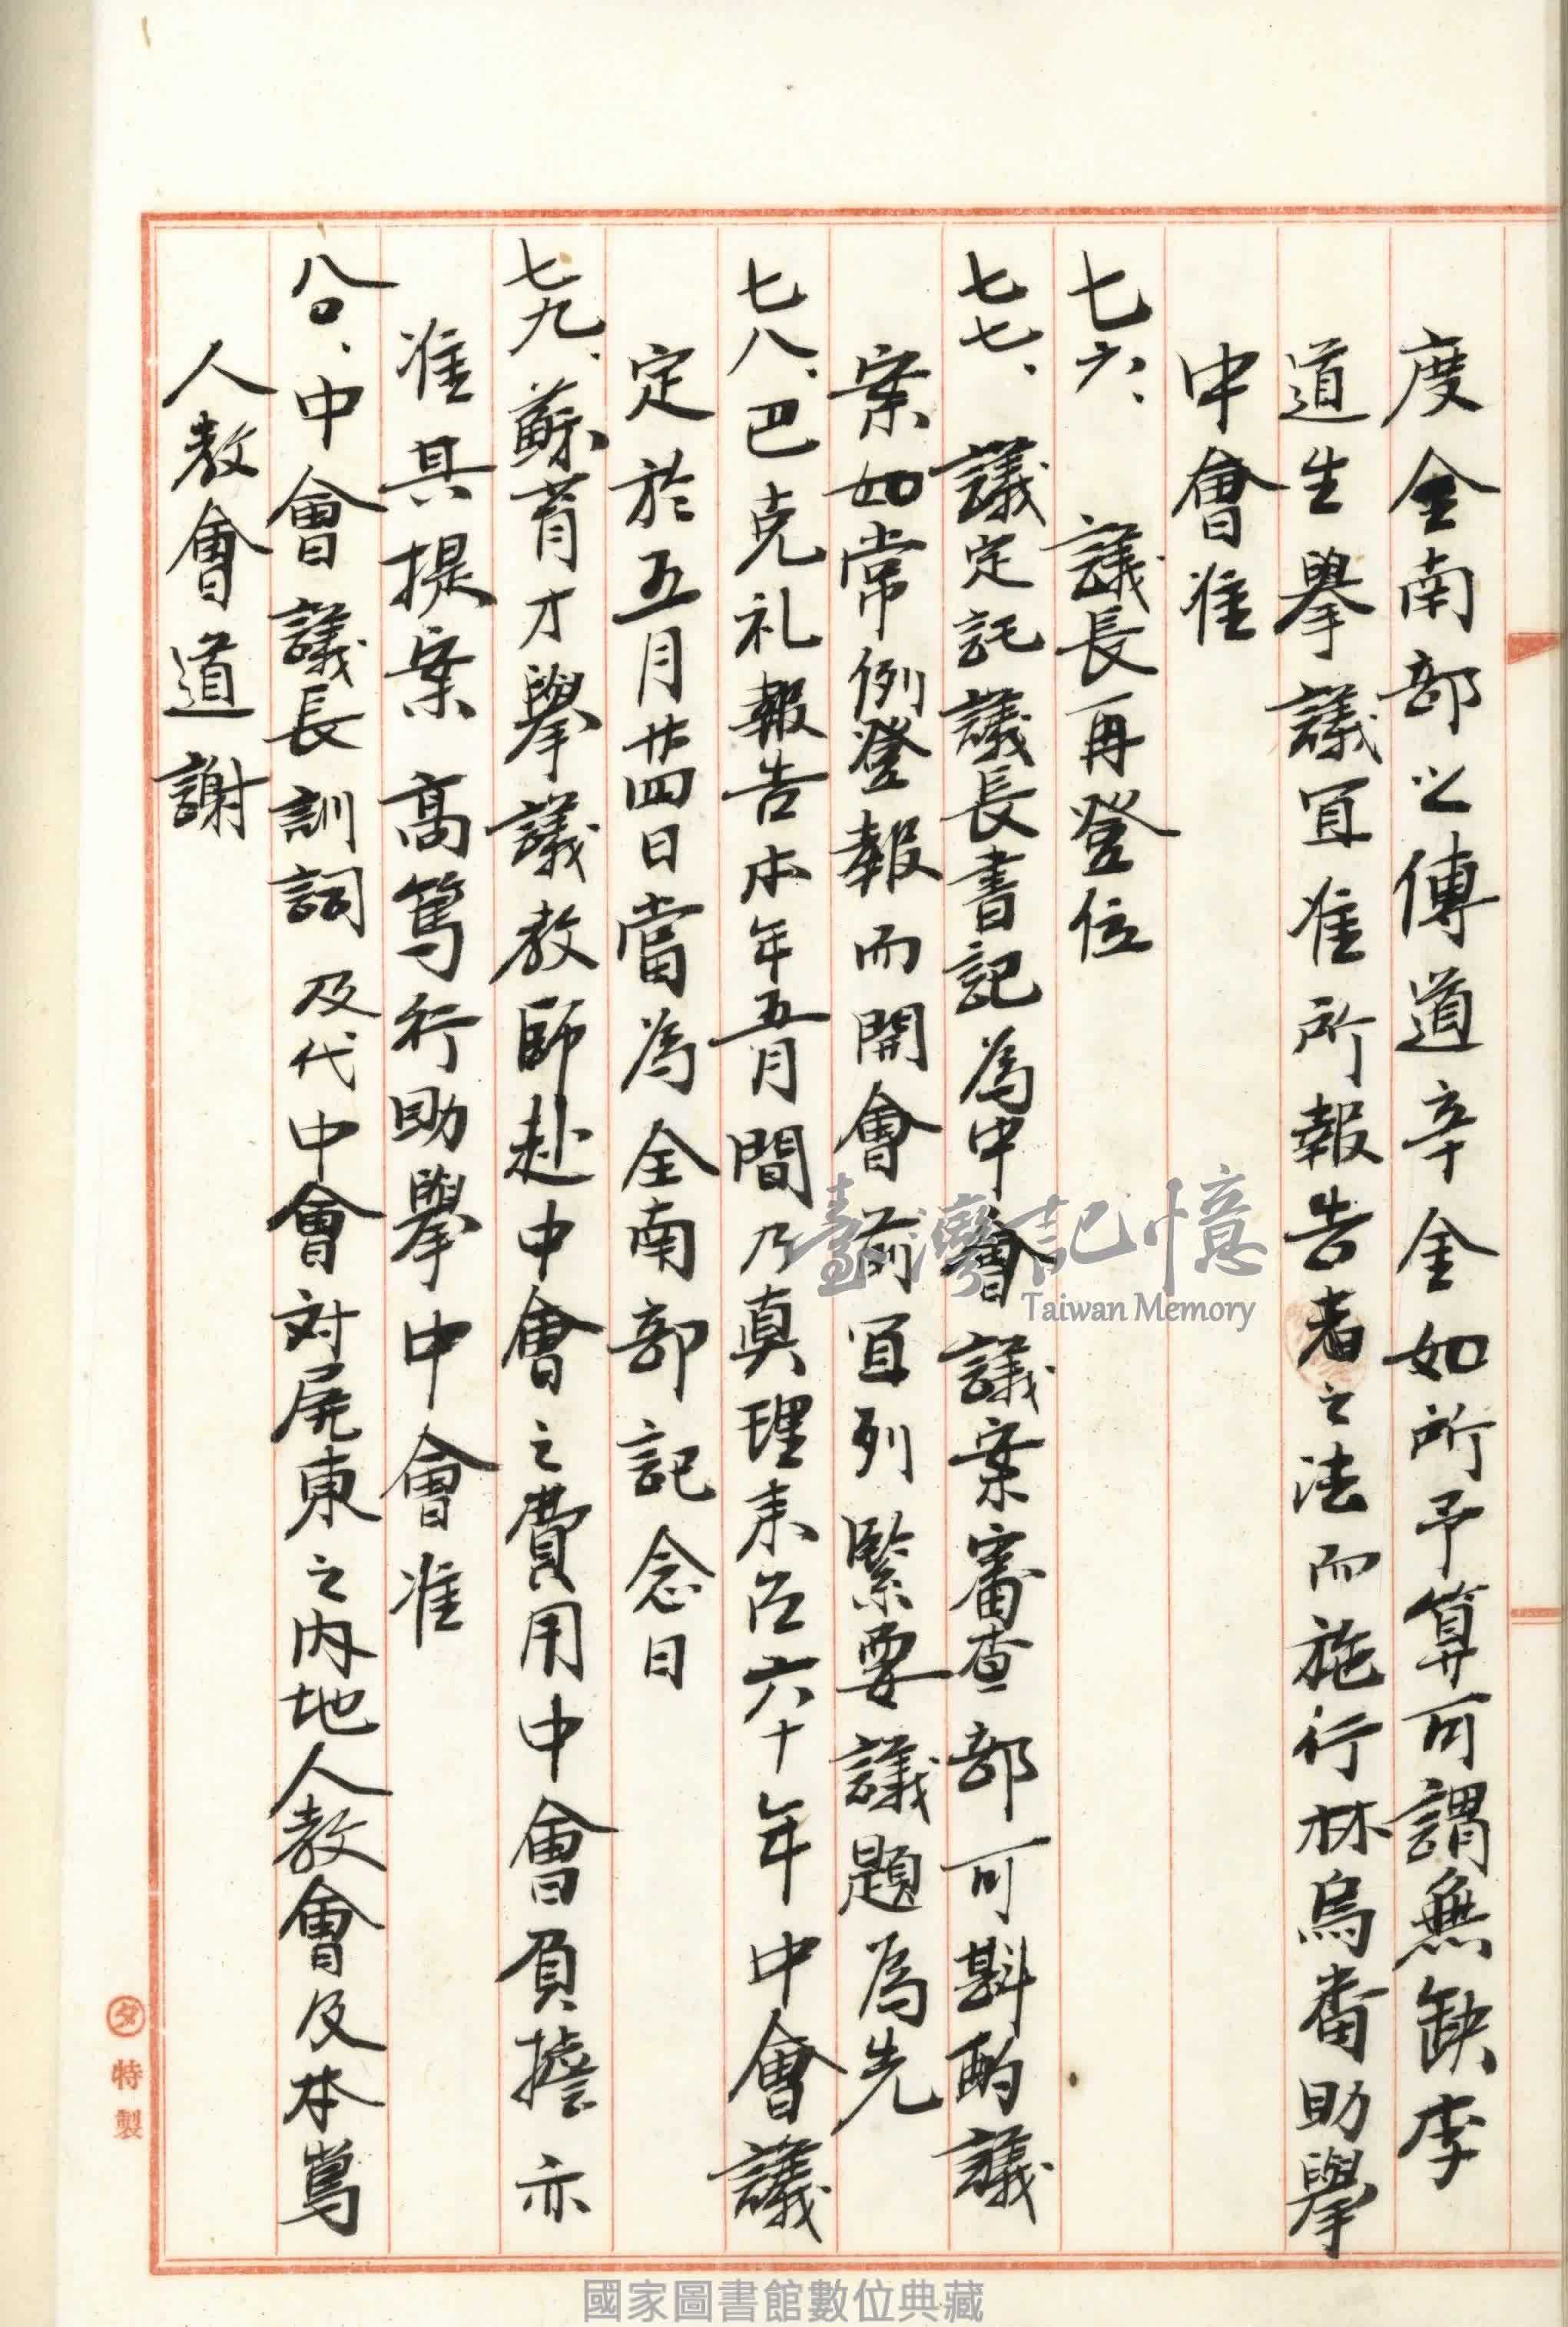 度全南部之傳道辛金如所予算可謂無缺李
道生擧議宜准所報告者之法而施行林烏番助擧
中會准
七六、議長再登位
七七、議定託議長書記為中會議案審查部可斟酌議
案如常例登報而開會前宜列緊要議題為先
七八、巴克礼報告本年五月間乃真理来臺六十年中會議
定於五月廿四日當為全南部記念日
七九、蘇育才擧議教師赴中會之費用中會負擔亦
准具提案高篤行助擧中會准
八〇、中會議長訓詞及代中會对屏東之内地人教會及本島
人教會道謝
タ特製
臺灣記憶
Taiwan Memory
國家圖書館數位典藏